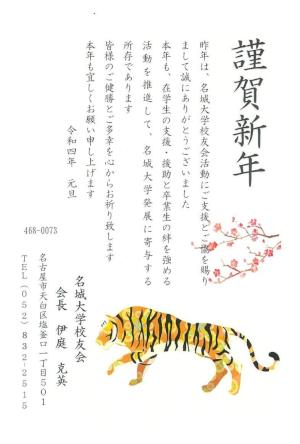 謹賀新年
昨年は、名城大学校友会活動にご支援とご協力を賜り
まして誠にありがとうございました
本年も、在学生の支援・援助と卒業生の絆を強める
活動を推進して、名城大学発展に寄与する
所存であります
皆様のご健勝とご多幸を心からお祈り致します
本年も宜しくお願い申し上げます
令和四年 元旦
468-0073
名城大学校友会
会長 伊庭 克英
名古屋市天白区塩釜口一丁目501
TEL(052)832-2515